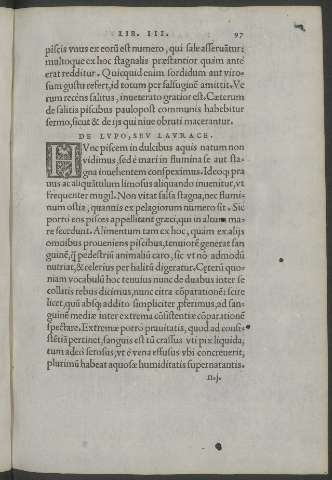 LIB. III. 97
piscis vnus ex eorū est numero, qui sale asseruātur:
multoque ex hoc stagnalis præstantior quam ante
erat redditur. Quicquid enim sordidum aut viro-
sum gustu refert, id totum per salsuginē amittit. Ve
rum recens salitus, inueterato gratior est. Cæterum
de salitis piscibus paulopost communis habebitur
sermo, sicut & de ijs qui niue obruti macerantur.
DE LVPO, SEV LAVRACE.
HVnc piscem in dulcibus aquis natum non
vidimus, sed è mari in flumina se aut sta-
gna inuehentem conspeximus. Ideoq; pra
uus ac aliquātulum limosus aliquando inuenitur, vt
frequenter mugil. Non vitat falsa stagna, nec flumi-
num ostia, quamuis ex pelagiorum numero sit. Sic
porrò eos pisces appellitant græci, qui in altum ma-
re secedunt. Alimentum tam ex hoc, quàm ex alijs
omnibus proueniens piscibus, tenuiorē generat san
guinē, q̄ pedestriū animaliū caro, sic vt nō admodū
nutriat, & celerius per halitū digeratur. Cæterū quo-
niam vocabulū hoc tenuius nunc de duabus inter se
collatis rebus dicimus, nunc citra cōparationē: scire
licet, quū absq; addito simpliciter, pferimus, ad san-
guinē mediæ inter extrema cōsistentiæ cōparationē
spectare. Extremæ porrò prauitatis, quod ad consi-
stētiā pertinet, sanguis est tū crassus vti pix liquida,
tum adeò serosus, vt è vena effusus vbi concreuerit,
plurimū habeat aquosæ humiditatis supernatantis.